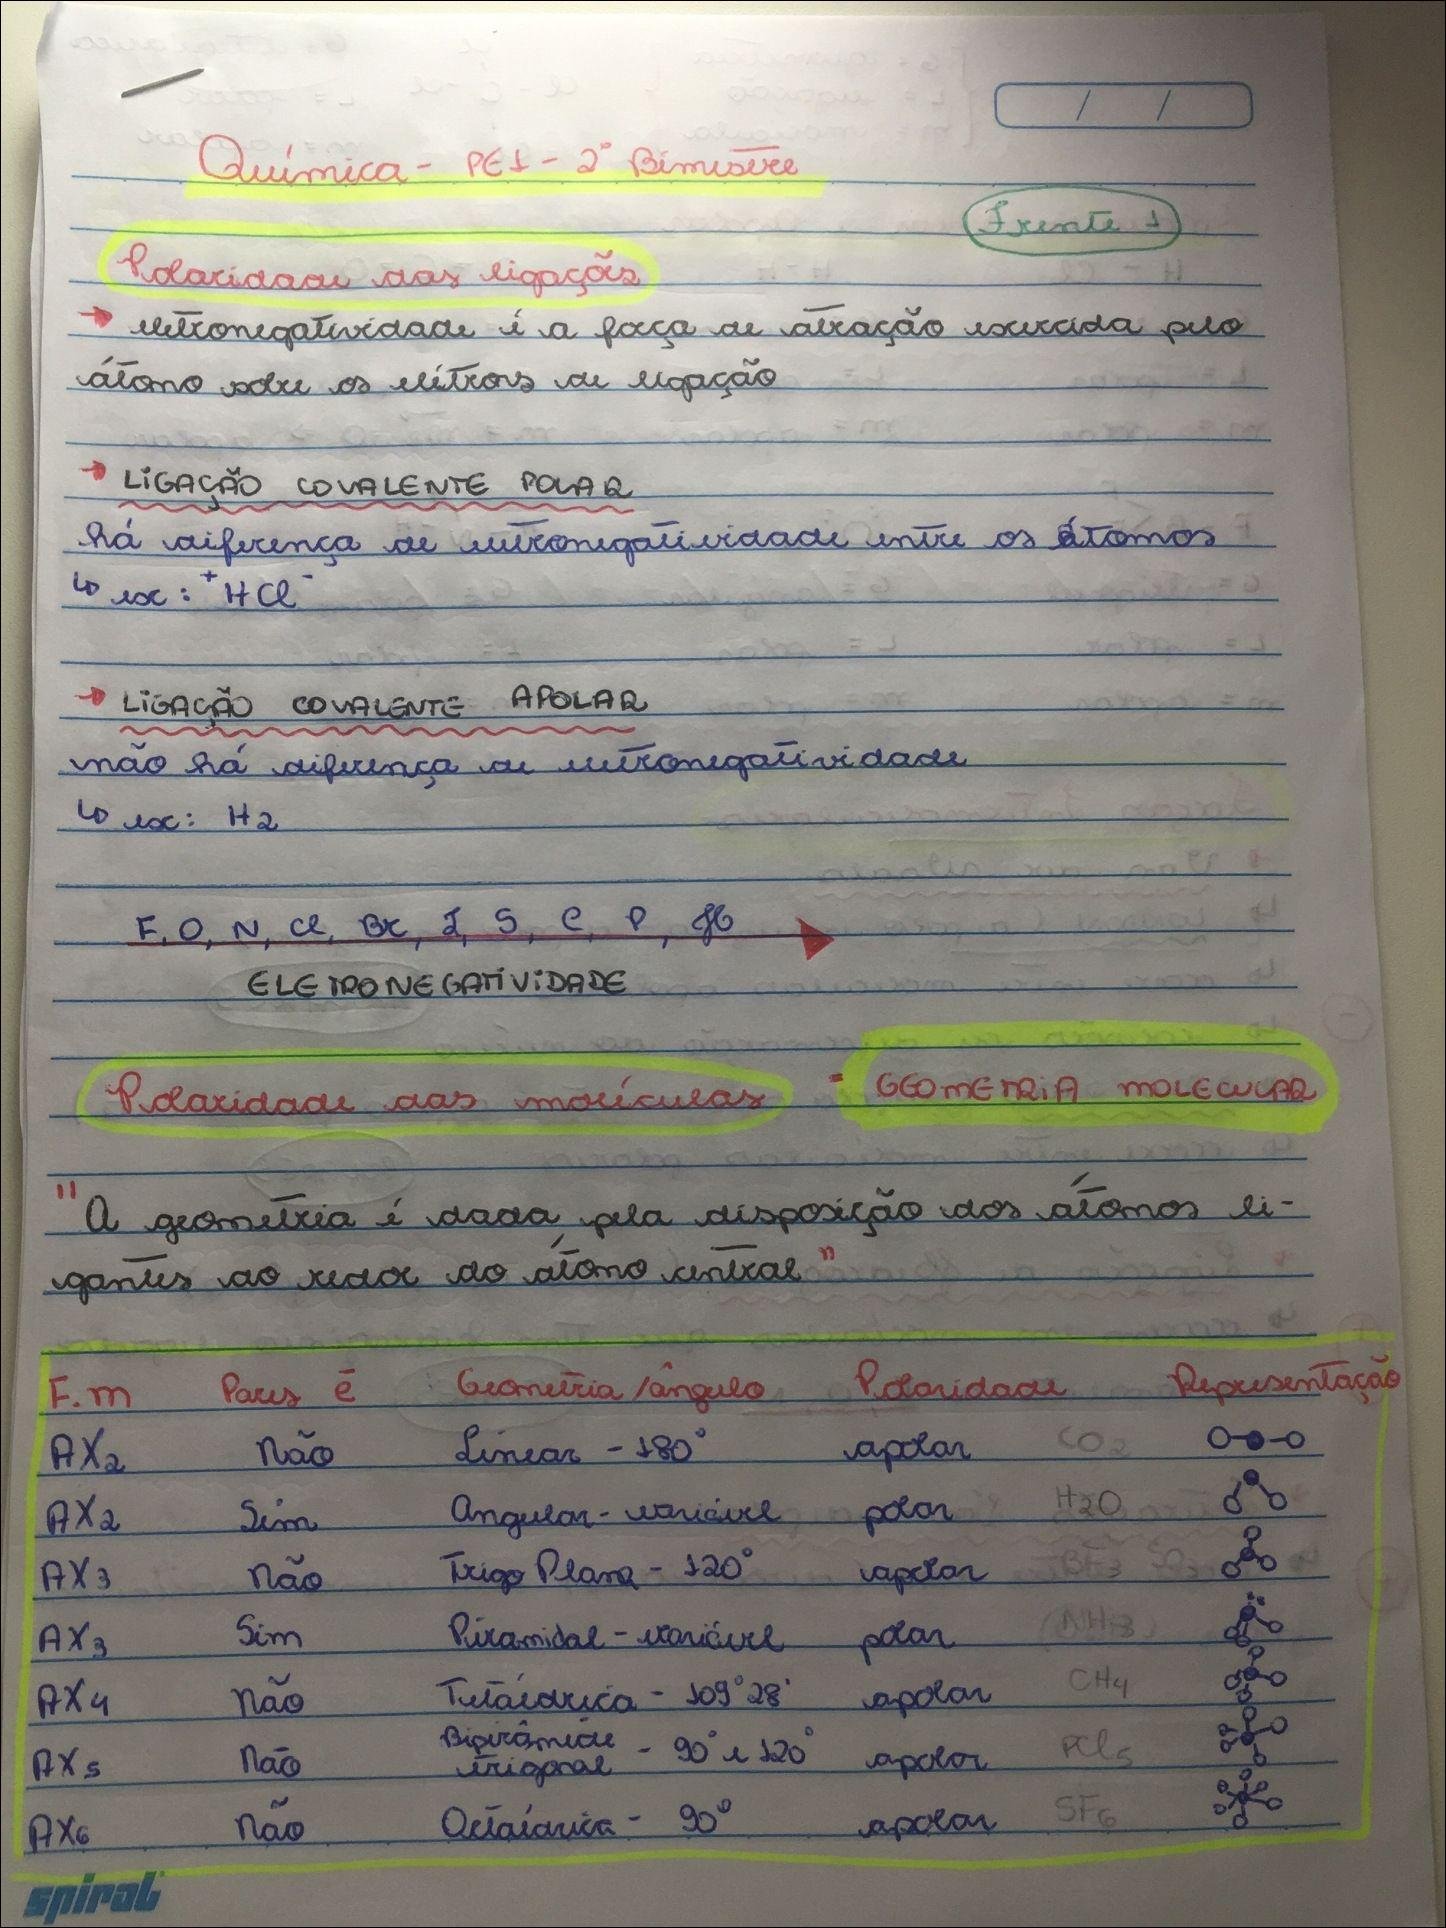 Química - PE1 - 2° Bimestre
Frente 1
Polaridade das ligações
→ eletronegatividade é a força de atração exercida pelo
átomo sobre os elétrons de ligação
→ LIGAÇÃO COVALENTE POLAR
há diferença de eletronegatividade entre os átomos
↳ ex: ⁺HCl⁻
→ LIGAÇÃO COVALENTE APOLAR
não há diferença de eletronegatividade
↳ ex: H2
F, O, N, Cl, Br, I, S, C, P, H
ELETRONEGATIVIDADE
Polaridade das moléculas = GEOMETRIA MOLECULAR
"A geometria é dada pela disposição dos átomos li-
gantes ao redor do átomo central"
F.m Pares ē Geometria/ângulo Polaridade Representação
AX2 Não Linear - 180° apolar CO2
AX2 Sim Angular - variável polar H2O
AX3 Não Trigo Plana - 120° apolar BF3
AX3 Sim Piramidal - variável polar NH3
AX4 Não Tetaédrica - 109°28' apolar CH4
AX5 Não Bipirâmide trigonal - 90° e 120° apolar PCl5
AX6 Não Octaédrica - 90° apolar SF6
spiral